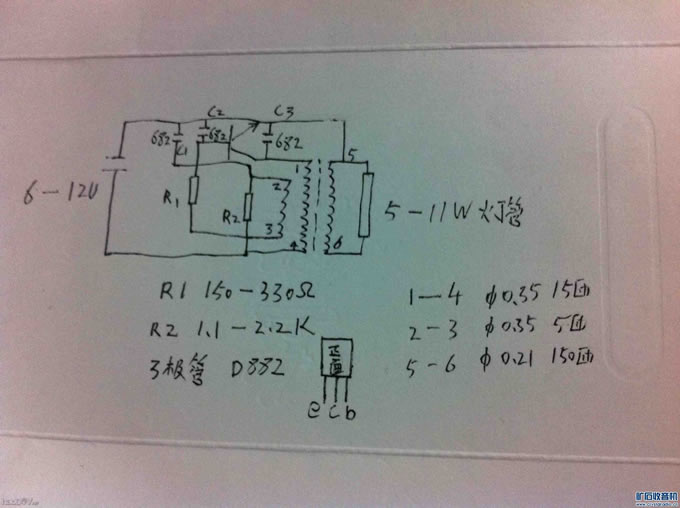 C2 C3
682 682 682
C1
1 5
6-12V
2
R1 R2
3
4 6
5-11W 灯管
R1 150-330Ω
R2 1.1-2.2K
3极管 D882
正面
e c b
1-4 φ0.35 15匝
2-3 φ0.35 5匝
5-6 φ0.21 150匝
矿石收音机